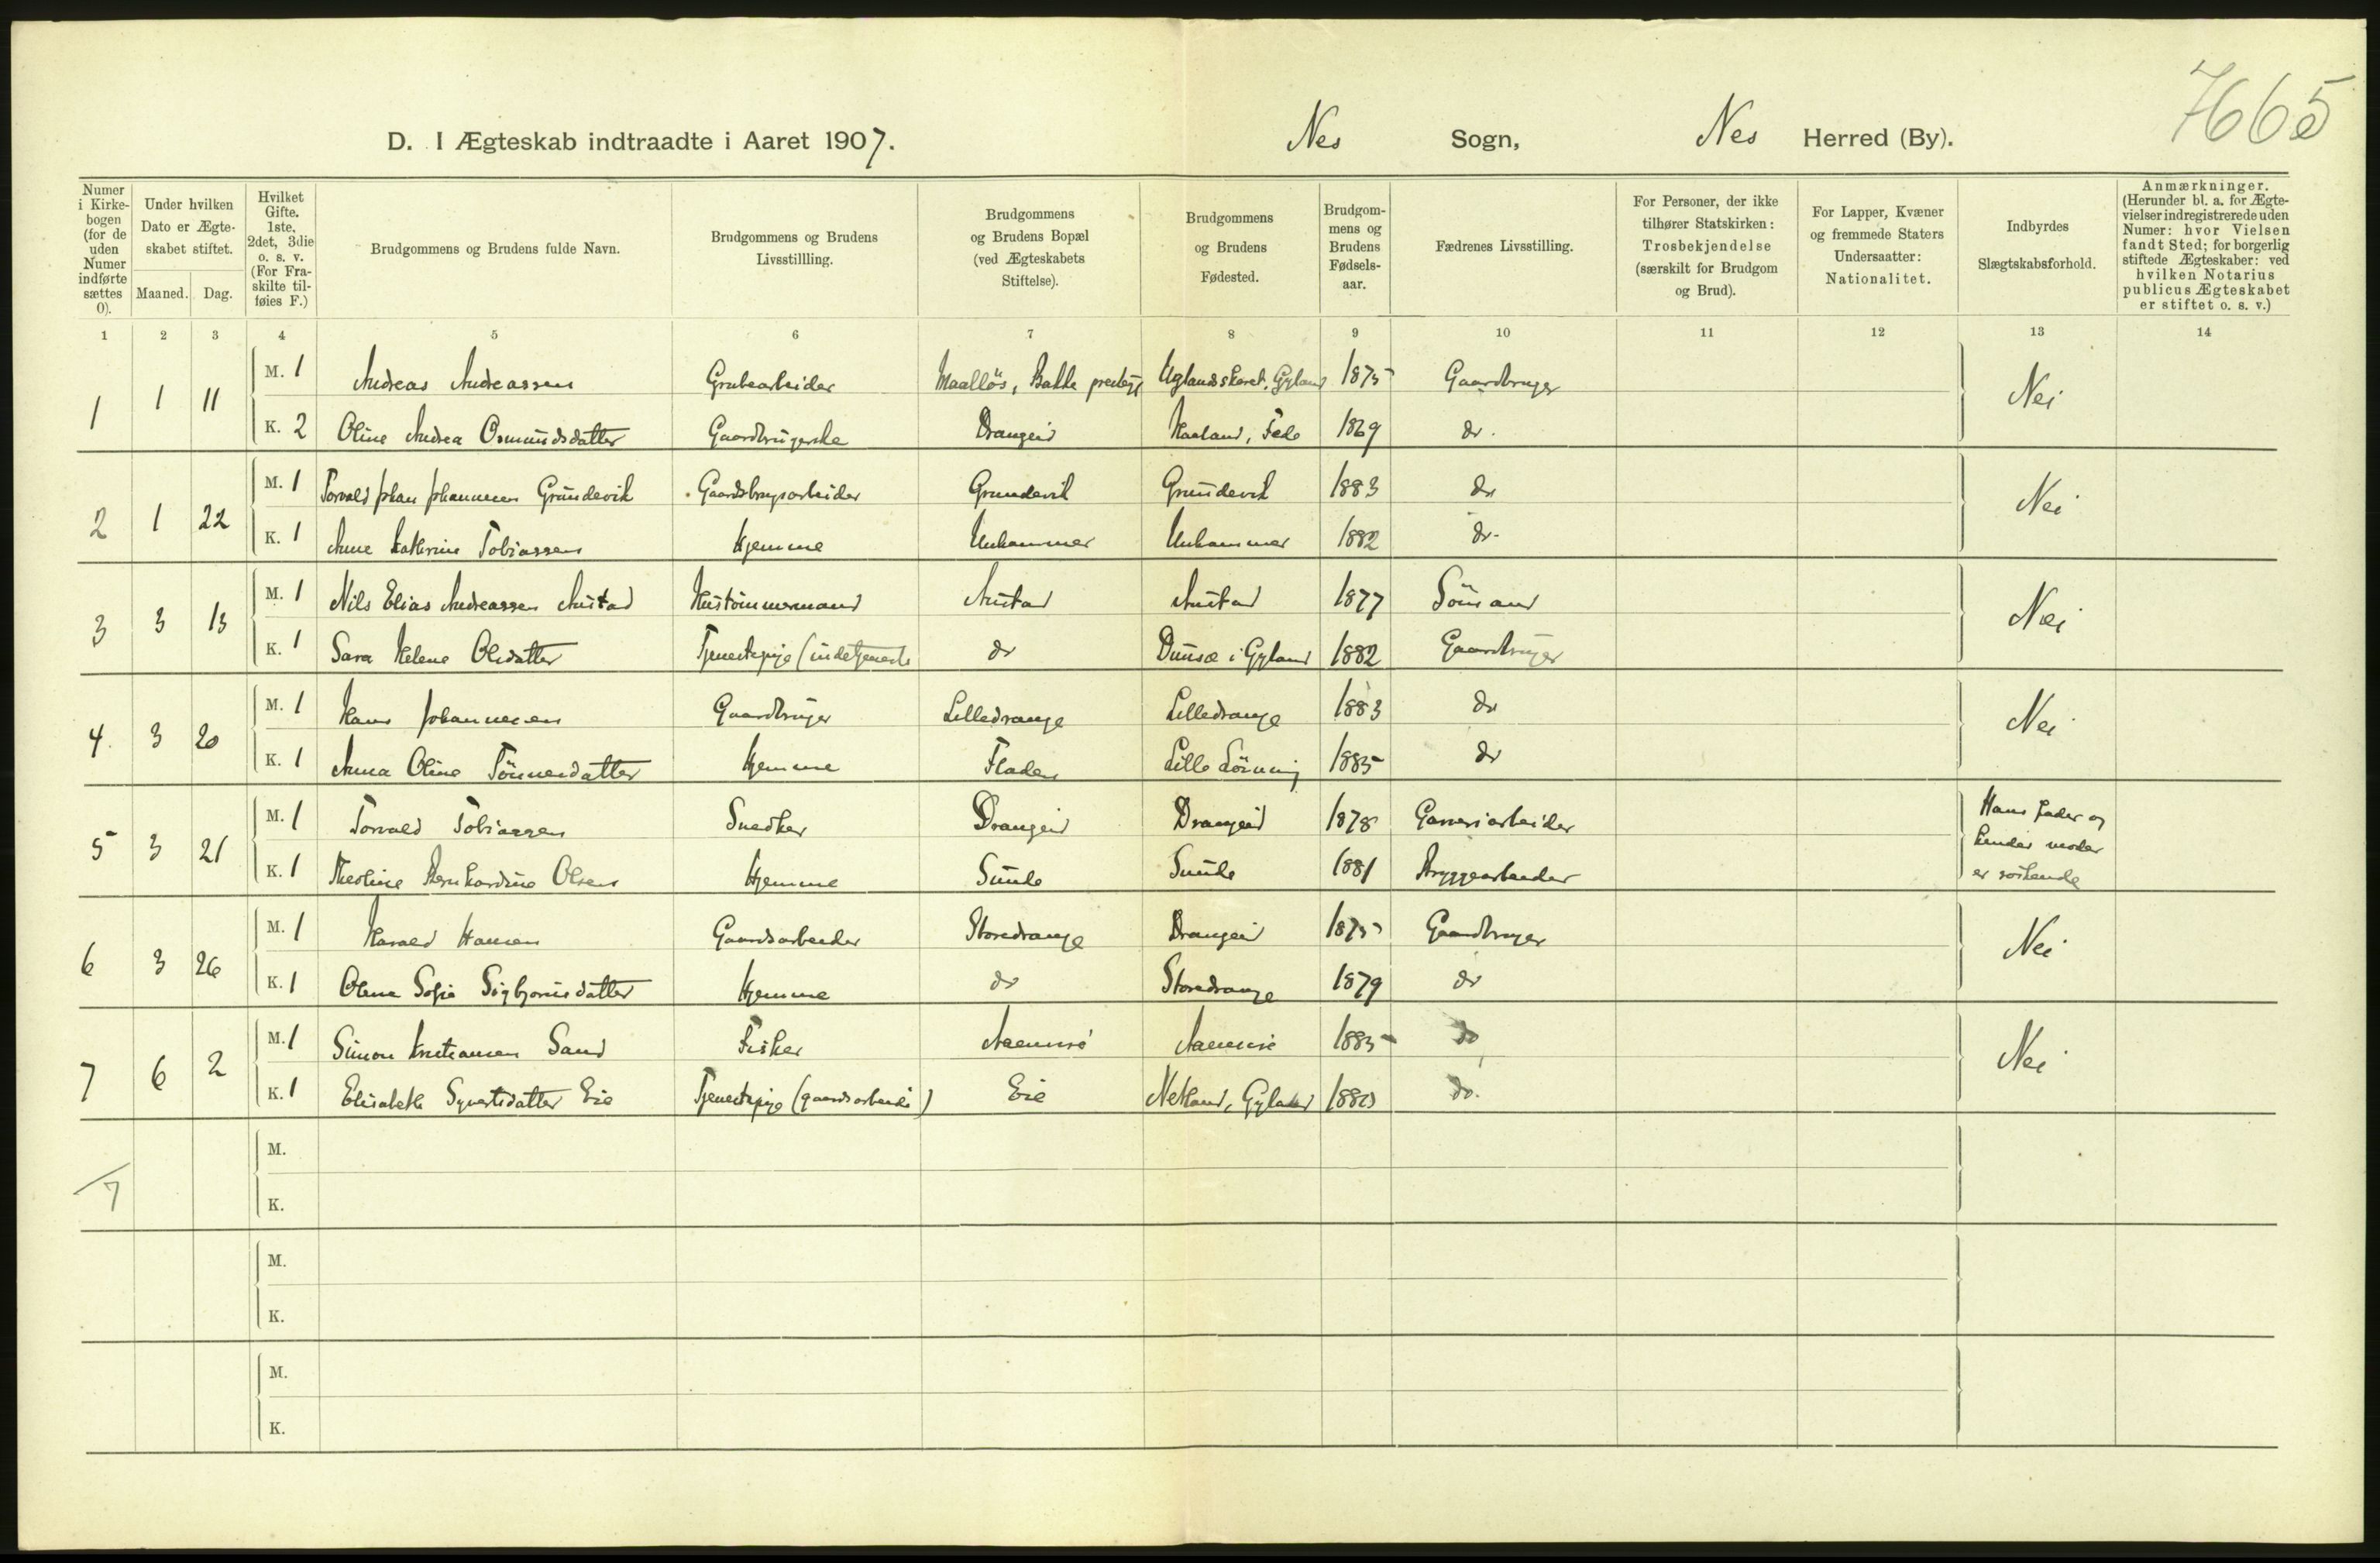 7665
D. I Ægteskab indtraadte i Aaret 1907. Nes Sogn, Nes Herred (By).
Numer i Kirkebogen (for de uden Numer indførte sættes 0).
Under hvilken Dato er Ægteskabet stiftet.
Maaned. Dag.
Hvilket Gifte. 1ste, 2det, 3die o. s. v. (For Fraskilte tilføies F.)
Brudgommens og Brudens fulde Navn.
Brudgommens og Brudens Livsstillling.
Brudgommens og Brudens Bopæl (ved Ægteskabets Stiftelse).
Brudgommens og Brudens Fødested.
Brudgommens og Brudens Fødselsaar.
Fædrenes Livsstilling.
For Personer, der ikke tilhører Statskirken: Trosbekjendelse (særskilt for Brudgom og Brud).
For Lapper, Kvæner og fremmede Staters Undersaatter: Nationalitet.
Indbyrdes Slægtskabsforhold.
Anmærkninger. (Herunder bl. a. for Ægtevielser indregistrerede uden Numer: hvor Vielsen fandt Sted; for borgerlig stiftede Ægteskaber: ved hvilken Notarius publicus Ægteskabet er stiftet o. s. v.)
1 2 3 4 5 6 7 8 9 10 11 12 13 14
1 1 11 M. 1 Andreas Andreassen Grubearbeider Bakke Gyland 1875 Gaardbruger Nei
K. 2 Oline Andrea Osmundsdatter Gaardbrugerske Drangeid Haaland, Fede 1869 do.
2 1 22 M. 1 Torvald Johan Johannesen Grundevik Gaardsbrugsarbeider Grundevik Grundevik 1883 do Nei
K. 1 Anne Kathrine Tobiassen Hjemme Unhammer Unhammer 1882 do.
3 3 13 M. 1 Nils Elias Andreassen Austad Hustömmermand Austad Austad 1877 Sömand Nei
K. 1 Sara Helene Olsdatter Tjenestepige do i Gyland 1882 Gaardbruger
4 3 20 M. 1 Hans Johannesen Gaardbruger Lilledrange Lilledrange 1883 do Nei
K. 1 Anna Oline Tönnesdatter Hjemme Fladen Lille 1885 do
5 3 21 M. 1 Torvald Tobiassen Snedker Drangeid Drangeid 1878 Garveriarbeider Hans fader og
K. 1 Theoline Bernhardine Olsen Hjemme Sunde Sunde 1881 Bryggearbeider hendes moder
er söskende
6 3 26 M. 1 Harald Hansen Gaardsarbeider Storedrange Drangeid 1875 Gaardbruger Nei
K. 1 Olene Sofie Sigbjørnsdatter Hjemme do Storedrange 1879 do
7 6 2 M. 1 Simon Kristiansen Sand Fisker 1885 do Nei
K. 1 Elisabeth Syvertsdatter Eie Tjenestepige (gaardsarbeide) Eie Netland, Gyland do.
M.
7
K.
M.
K.
M.
K.